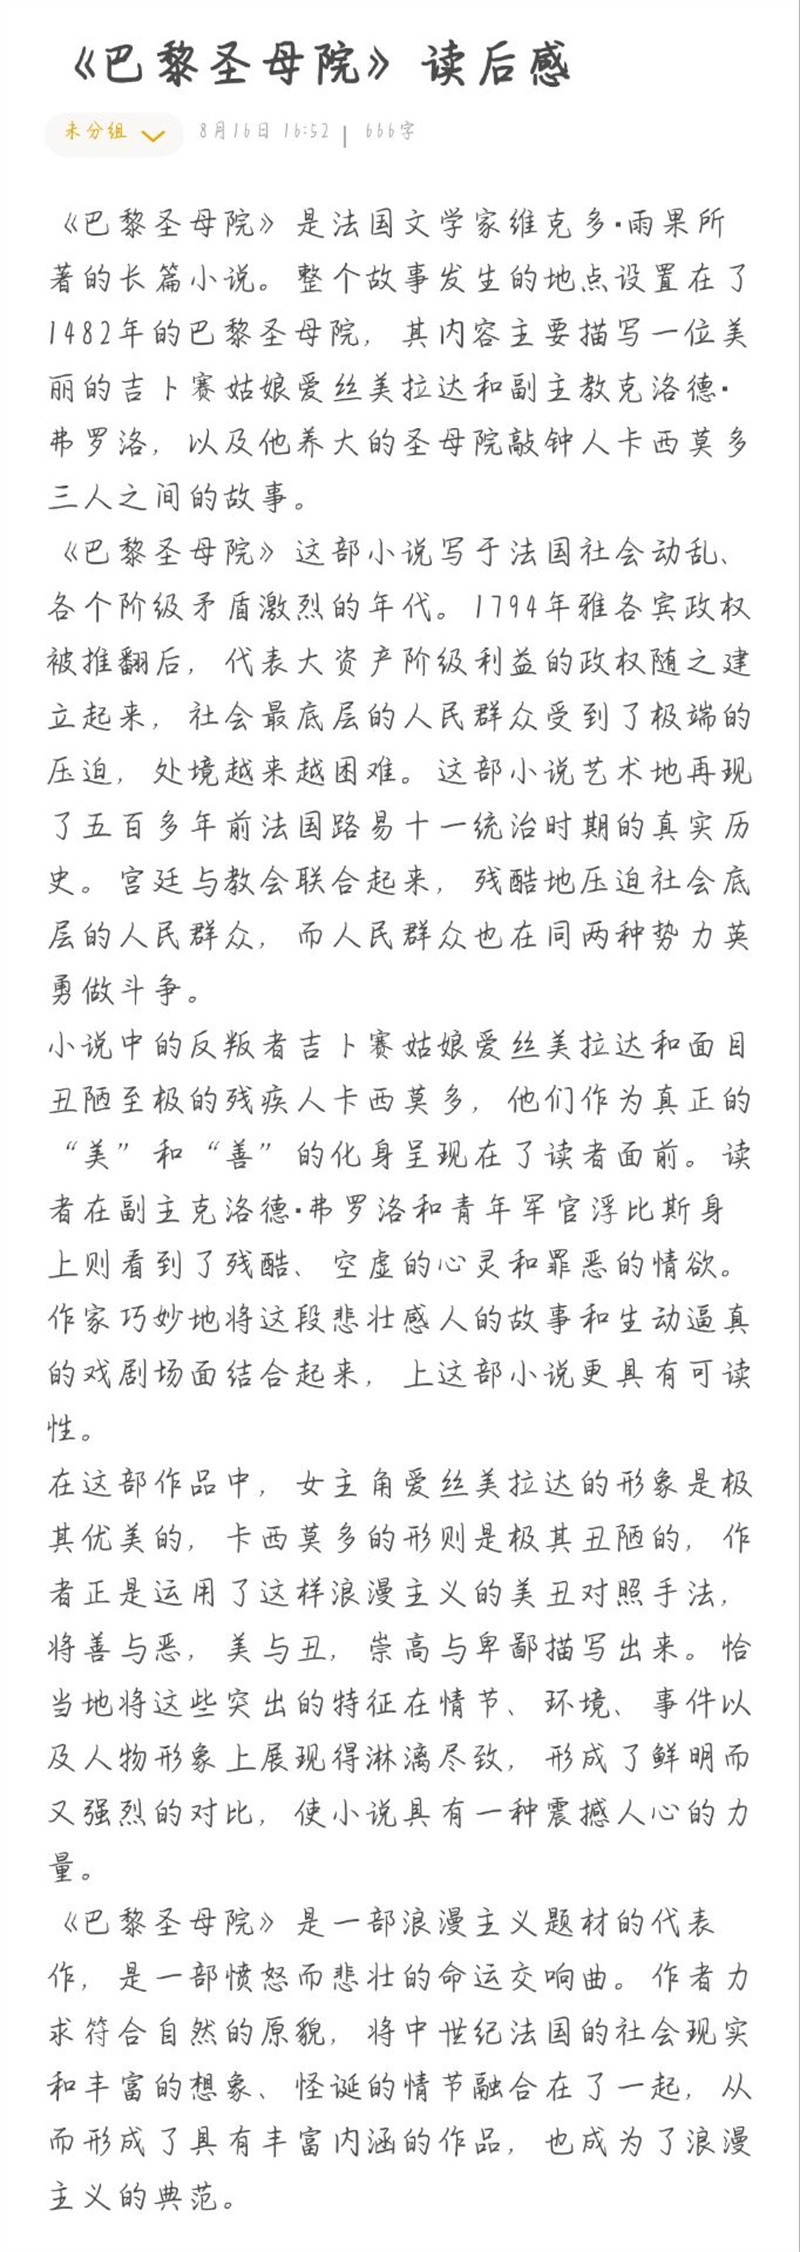 《巴黎圣母院》读后感
未分组 8月16日 16:52 | 666字
《巴黎圣母院》是法国文学家维克多·雨果所
著的长篇小说。整个故事发生的地点设置在了
1482年的巴黎圣母院，其内容主要描写一位美
丽的吉卜赛姑娘爱丝美拉达和副主教克洛德·
弗罗洛，以及他养大的圣母院敲钟人卡西莫多
三人之间的故事。
《巴黎圣母院》这部小说写于法国社会动乱、
各个阶级矛盾激烈的年代。1794年雅各宾政权
被推翻后，代表大资产阶级利益的政权随之建
立起来，社会最底层的人民群众受到了极端的
压迫，处境越来越困难。这部小说艺术地再现
了五百多年前法国路易十一统治时期的真实历
史。宫廷与教会联合起来，残酷地压迫社会底
层的人民群众，而人民群众也在同两种势力英
勇做斗争。
小说中的反叛者吉卜赛姑娘爱丝美拉达和面目
丑陋至极的残疾人卡西莫多，他们作为真正的
“美”和“善”的化身呈现在了读者面前。读
者在副主克洛德·弗罗洛和青年军官浮比斯身
上则看到了残酷、空虚的心灵和罪恶的情欲。
作家巧妙地将这段悲壮感人的故事和生动逼真
的戏剧场面结合起来，上这部小说更具有可读
性。
在这部作品中，女主角爱丝美拉达的形象是极
其优美的，卡西莫多的形则是极其丑陋的，作
者正是运用了这样浪漫主义的美丑对照手法，
将善与恶，美与丑，崇高与卑鄙描写出来。恰
当地将这些突出的特征在情节、环境、事件以
及人物形象上展现得淋漓尽致，形成了鲜明而
又强烈的对比，使小说具有一种震撼人心的力
量。
《巴黎圣母院》是一部浪漫主义题材的代表
作，是一部愤怒而悲壮的命运交响曲。作者力
求符合自然的原貌，将中世纪法国的社会现实
和丰富的想象、怪诞的情节融合在了一起，从
而形成了具有丰富内涵的作品，也成为了浪漫
主义的典范。